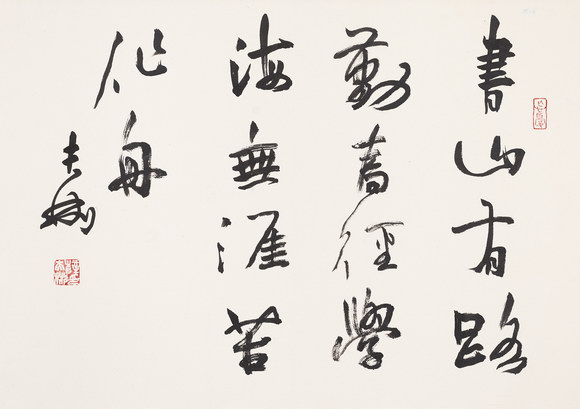 書山有路
勤徑學
海無涯苦
作舟